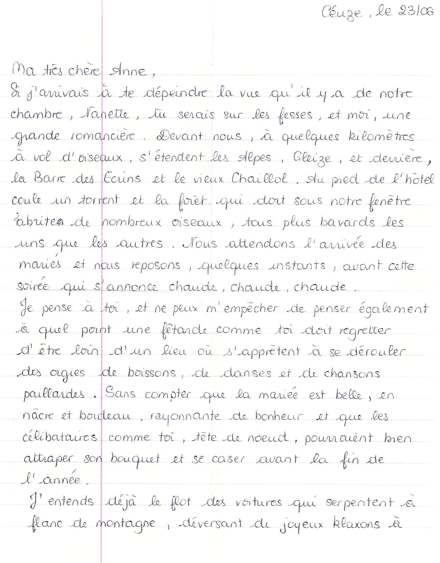 Céuze, le 23/06
Ma très chère Anne,
Si j'arrivais à te dépeindre la vue qu'il y a de notre
chambre, Nanette, tu serais sur les fesses, et moi, une
grande romancière. Devant nous, à quelques kilomètres
à vol d'oiseaux, s'étendent les Alpes, Gleize, et derrière,
la Barre des Ecrins et le vieux Chaillol. Au pied de l'hôtel
coule un torrent et la forêt qui dort sous notre fenêtre
abrite de nombreux oiseaux, tous plus bavards les
uns que les autres. Nous attendons l'arrivée des
mariés et nous reposons, quelques instants, avant cette
soirée qui s'annonce chaude, chaude, chaude.
Je pense à toi, et ne peux m'empêcher de penser également
à quel point une fêtarde comme toi doit regretter
d'être loin d'un lieu où s'apprêtent à se dérouler
des orgies de boissons, de danses et de chansons
paillardes. Sans compter que la mariée est belle, en
nâcre et bordeau, rayonnante de bonheur et que les
célibataires comme toi, tête de noeud, pourraient bien
attraper son bouquet et se caser avant la fin de
l'année.
J'entends déjà le flot des voitures qui serpentent à
flanc de montagne, déversant de joyeux klaxons à